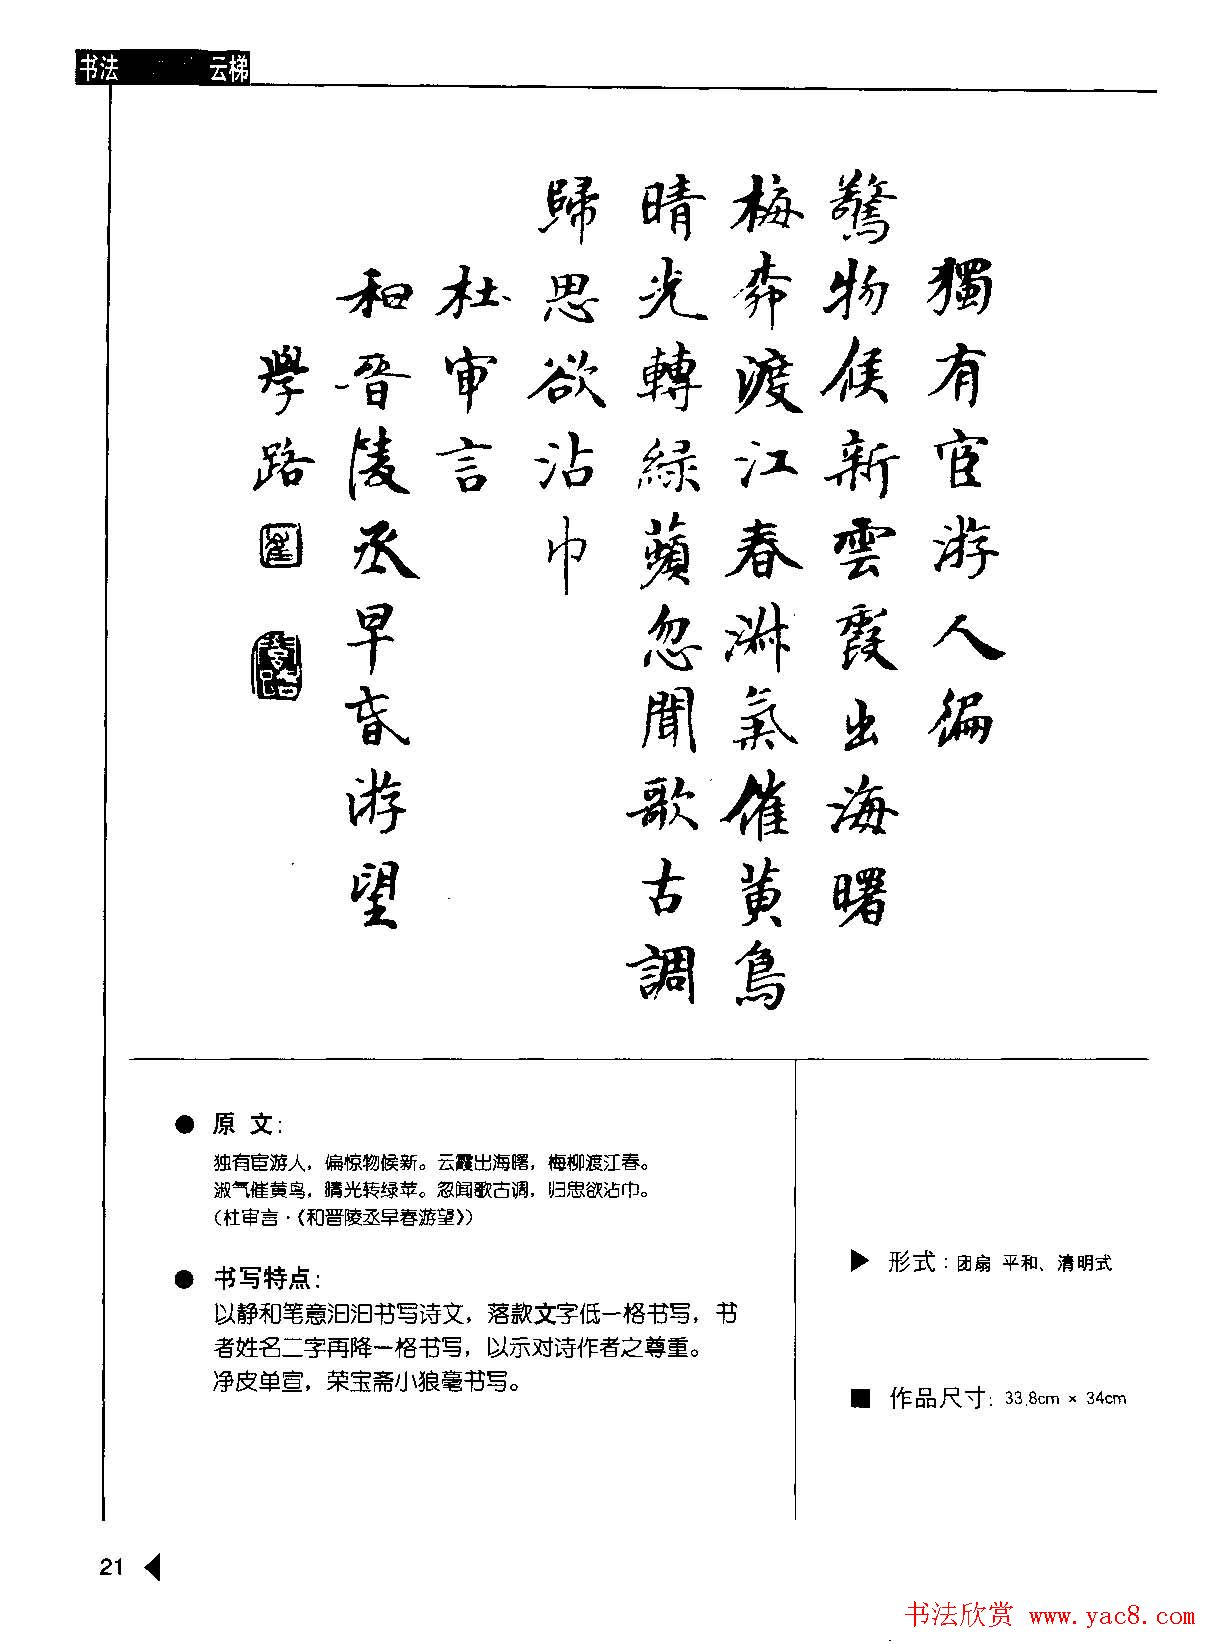 书法 云梯
獨有宦游人偏
驚物候新雲霞出海曙
梅桺渡江春淑氣催黄鳥
晴光轉緑蘋忽聞歌古調
歸思欲沾巾
杜审言
和晉陵丞早春游望
學路
● 原 文：
独有宦游人，偏惊物候新。云霞出海曙，梅柳渡江春。
淑气催黄鸟，晴光转绿苹。忽闻歌古调，归思欲沾巾。
（杜审言·《和晋陵丞早春游望》）
● 书写特点：
以静和笔意汩汩书写诗文，落款文字低一格书写，书
者姓名二字再降一格书写，以示对诗作者之尊重。
净皮单宣，荣宝斋小狼毫书写。
▶ 形式：团扇 平和、清明式
■ 作品尺寸：33.8cm × 34cm
21
书法欣赏 www.yac8.com